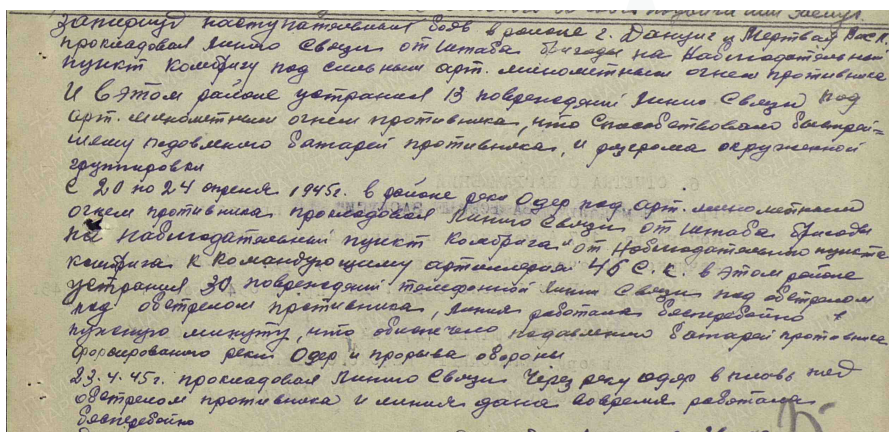 За период наступательных боев в районе г. Данциг и Мертвая Висла
прокладовал линию связи от штаба бригады на Наблюдательный
пункт комбригу под сильным арт. минометным огнем противника
И в этом районе устранил 13 повреждений линию связи под
арт. минометным огнем противника, что способствовало быстрей=
шему подовлению батарей противника, и разгрома окруженной
группировки
с 20 по 24 апреля 1945г. в районе реки Одер под арт. минометным
огнем противника прокладовал линию связи от штаба бригады
на Наблюдательный пункт Комбрига и от Наблюдательного пункта
комбрига к Командующему артиллерией 46 С.К. в этом районе
устранил 30 повреждений телефонной линии связи под обстрелом
под обстрелом противника, линия работала бесперебойно в
нужную минуту, что обеспечено подавлению батарей противника
форсированого реки Одер и прорыва обороны
23.4.45г. прокладовал линию связи через реку Одер в плавь под
обстрелом противника и линия дана вовремя работала
бесперебойно